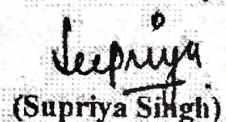 Supriya
(Supriya Singh)